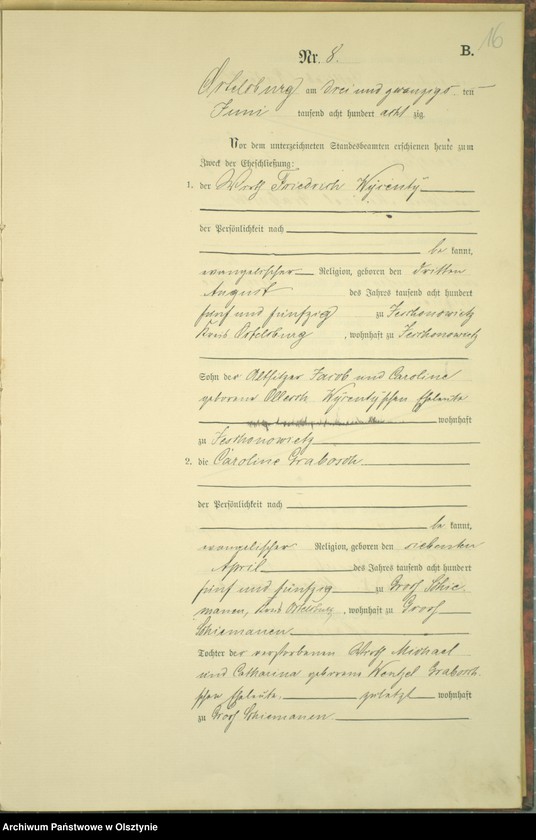 16
Nr. 8. B.
Ortelsburg am drei und zwanzigs ten
Juni tausend acht hundert acht zig.
Vor dem unterzeichneten Standesbeamten erschienen heute zum
Zweck der Eheschließung:
1. der Wirth Friedrich
der Persönlichkeit nach
be kannt,
evangelischer Religion, geboren den dritten
August des Jahres tausend acht hundert
fünf und fünfzig zu
Kreis Ortelsburg, wohnhaft zu
Sohn der Altsitzer Jacob und Caroline
geborene Eheleute
wohnhaft
zu
2. die Caroline Grabosch
der Persönlichkeit nach
be kannt,
evangelischer Religion, geboren den siebenten
April des Jahres tausend acht hundert
fünf und fünfzig zu Groß Schie
manen, Kreis Ortelsburg, wohnhaft zu Groß
Schiemanen
Tochter der verstorbenen Wirth Michael
und Catharina geborene Wenzel Grabosch
schen Eheleute, zuletzt wohnhaft
zu Groß Schiemanen
Archiwum Państwowe w Olsztynie